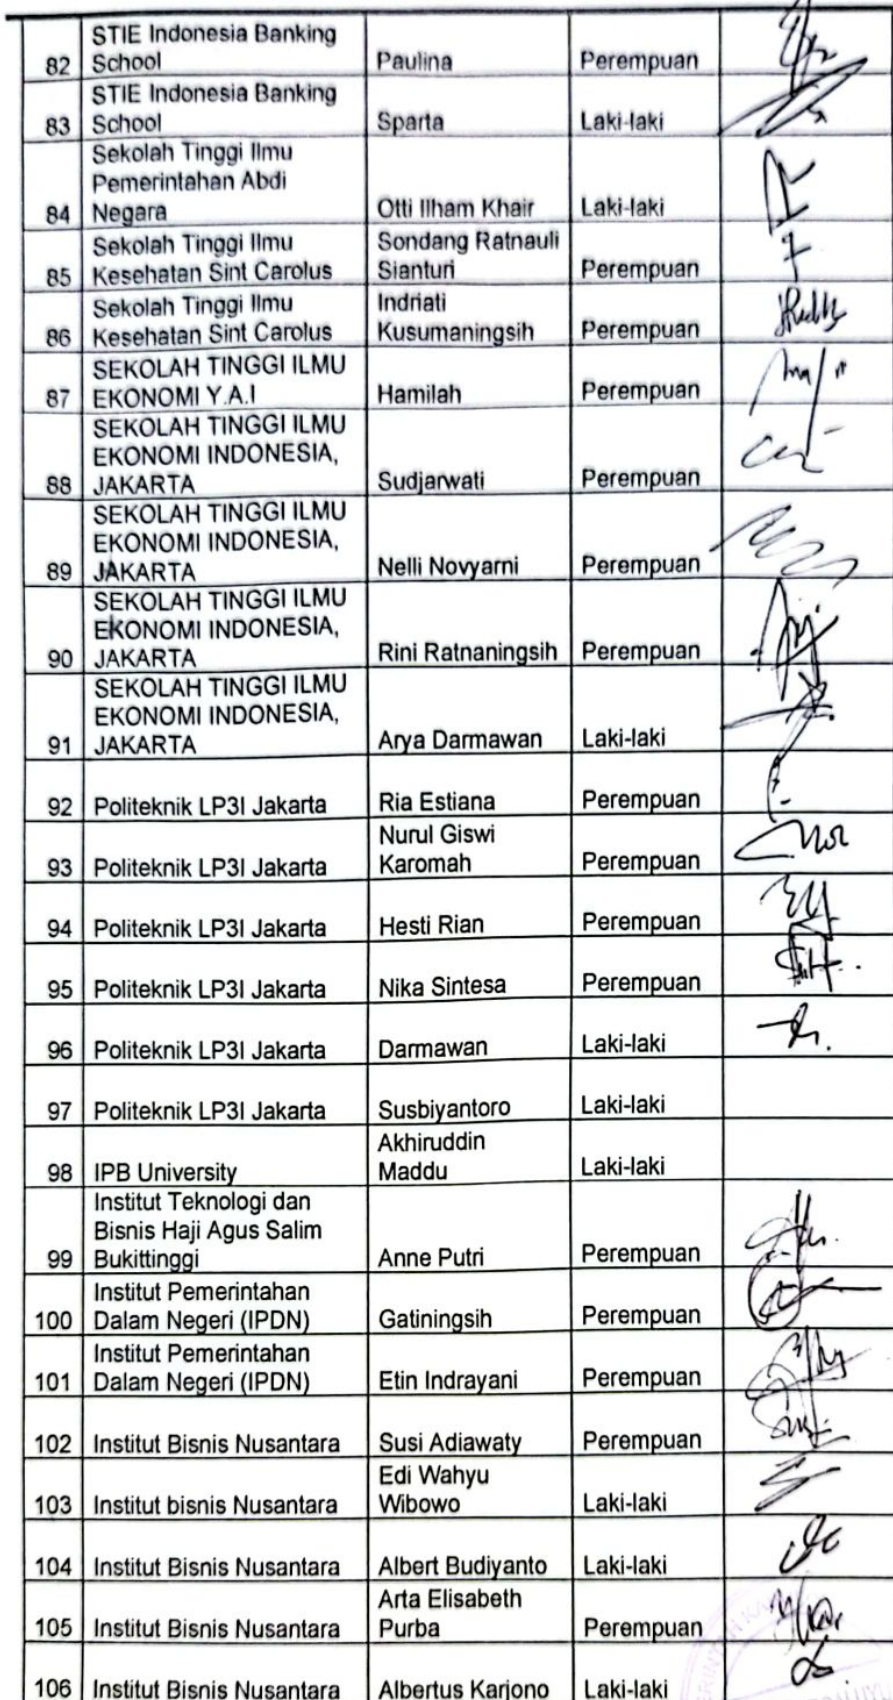 STIE Indonesia Banking
82 School Paulina Perempuan
STIE Indonesia Banking
83 School Sparta Laki-laki
Sekolah Tinggi Ilmu
Pemerintahan Abdi
84 Negara Otti Ilham Khair Laki-laki
Sekolah Tinggi Ilmu Sondang Ratnauli
85 Kesehatan Sint Carolus Sianturi Perempuan
Sekolah Tinggi Ilmu Indriati
86 Kesehatan Sint Carolus Kusumaningsih Perempuan
SEKOLAH TINGGI ILMU
87 EKONOMI Y.A.I Hamilah Perempuan
SEKOLAH TINGGI ILMU
EKONOMI INDONESIA,
88 JAKARTA Sudjarwati Perempuan
SEKOLAH TINGGI ILMU
EKONOMI INDONESIA,
89 JAKARTA Nelli Novyarni Perempuan
SEKOLAH TINGGI ILMU
EKONOMI INDONESIA,
90 JAKARTA Rini Ratnaningsih Perempuan
SEKOLAH TINGGI ILMU
EKONOMI INDONESIA,
91 JAKARTA Arya Darmawan Laki-laki
92 Politeknik LP3I Jakarta Ria Estiana Perempuan
Nurul Giswi
93 Politeknik LP3I Jakarta Karomah Perempuan
94 Politeknik LP3I Jakarta Hesti Rian Perempuan
95 Politeknik LP3I Jakarta Nika Sintesa Perempuan
96 Politeknik LP3I Jakarta Darmawan Laki-laki
97 Politeknik LP3I Jakarta Susbiyantoro Laki-laki
Akhiruddin
98 IPB University Maddu Laki-laki
Institut Teknologi dan
Bisnis Haji Agus Salim
99 Bukittinggi Anne Putri Perempuan
Institut Pemerintahan
100 Dalam Negeri (IPDN) Gatiningsih Perempuan
Institut Pemerintahan
101 Dalam Negeri (IPDN) Etin Indrayani Perempuan
102 Institut Bisnis Nusantara Susi Adiawaty Perempuan
Edi Wahyu
103 Institut bisnis Nusantara Wibowo Laki-laki
104 Institut Bisnis Nusantara Albert Budiyanto Laki-laki
Arta Elisabeth
105 Institut Bisnis Nusantara Purba Perempuan
106 Institut Bisnis Nusantara Albertus Karjono Laki-laki